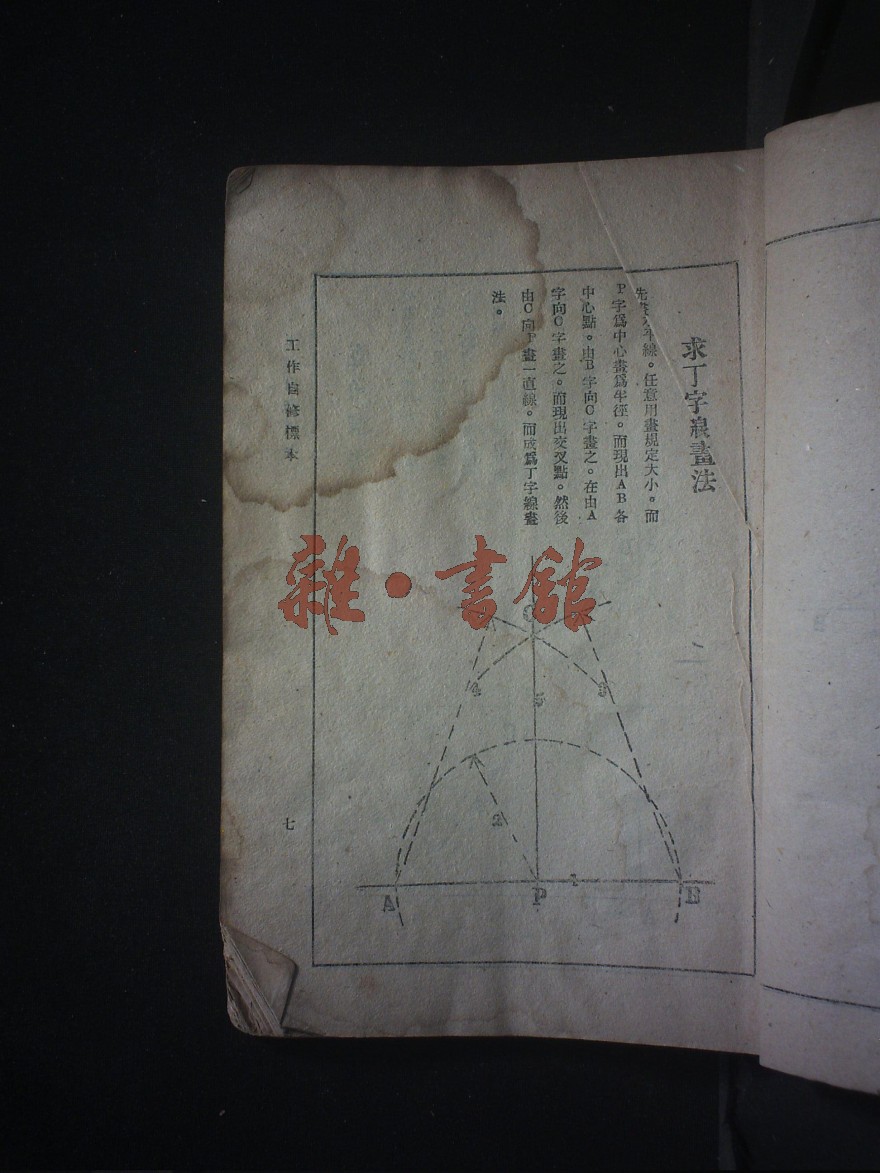 求丁字線畫法
先畫水平線。任意用畫規定大小。而
P字爲中心畫爲半徑。而現出AB各
中心點。由B字向C字畫之。在由A
字向C字畫之。而現出交叉點。然後
由C向P畫一直線。而成爲丁字線畫
法。
工作自修標本
七
雜·書館
C
4
3
5
2
1
A
P
B